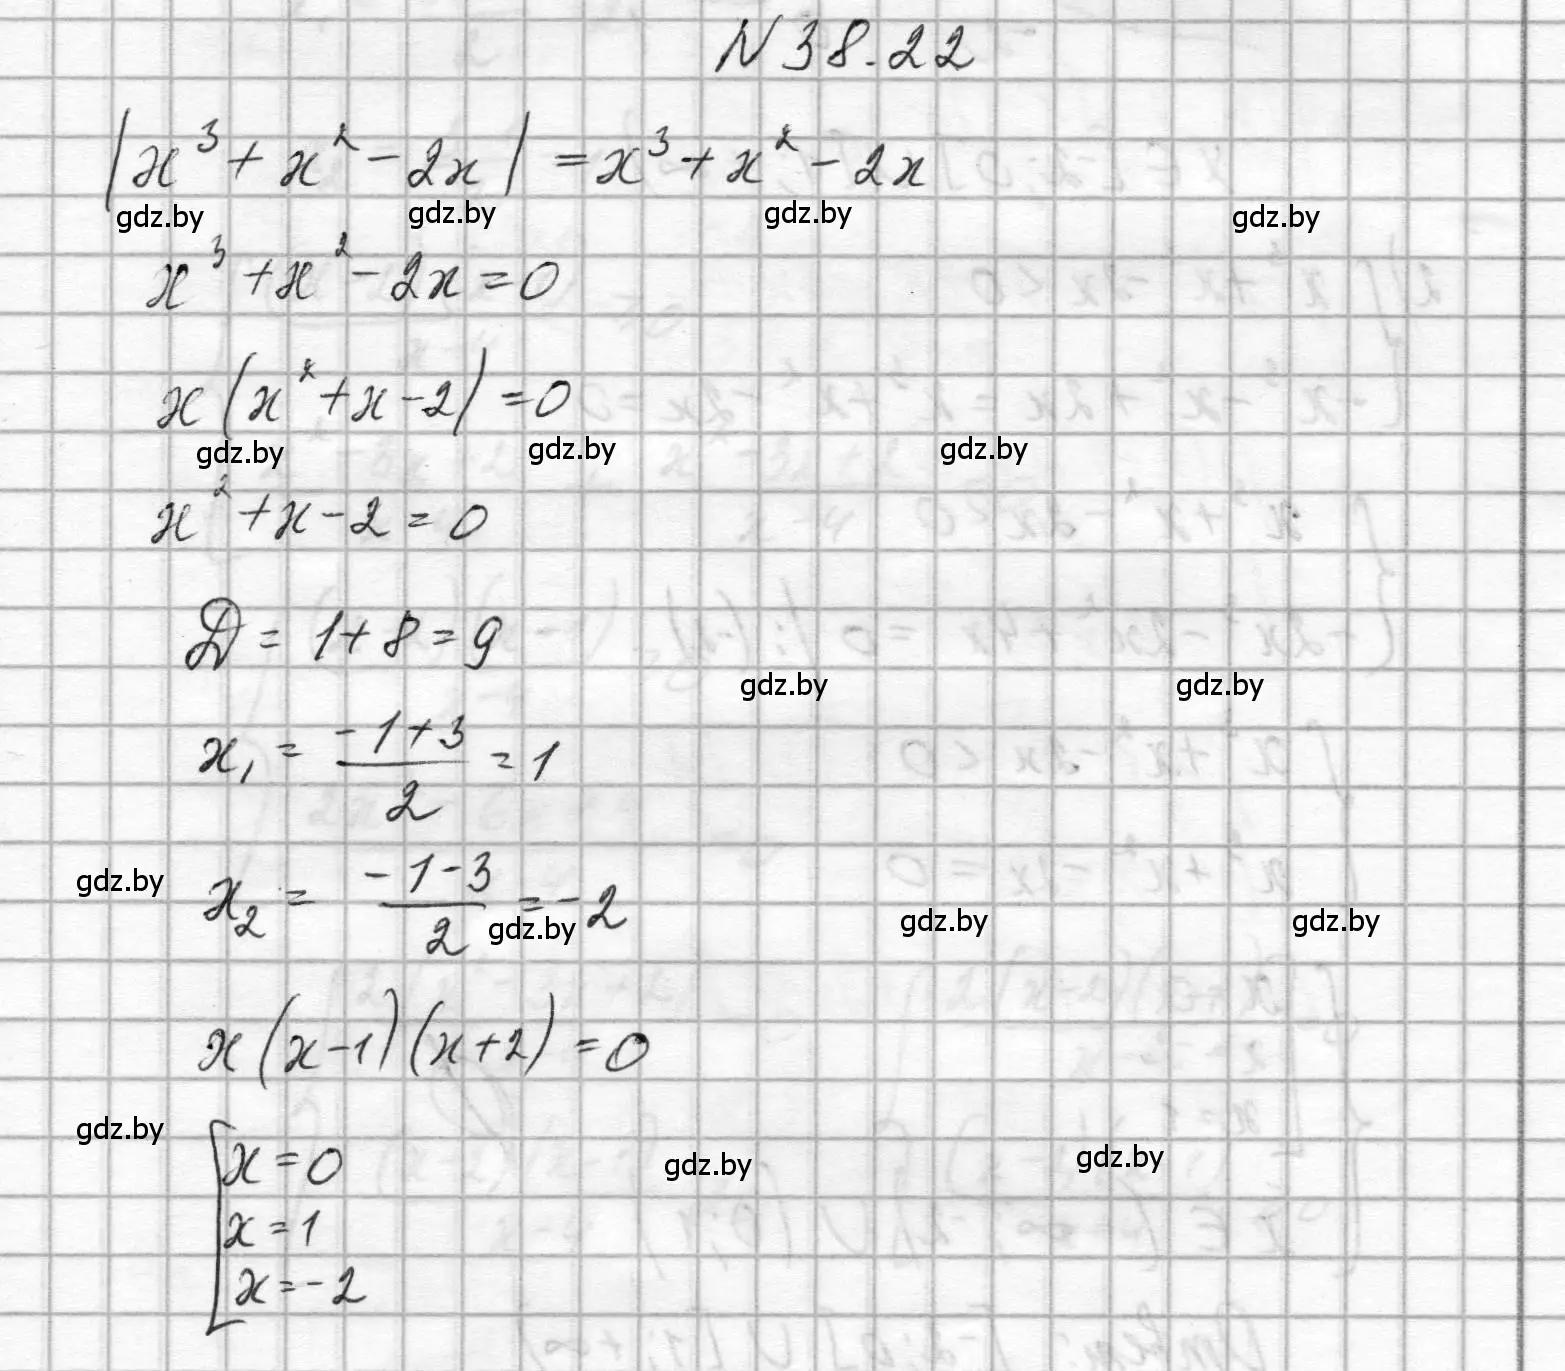 N 38.22
|x³ + x² - 2x| = x³ + x² - 2x
gdz.by gdz.by gdz.by gdz.by
x³ + x² - 2x = 0
x(x² + x - 2) = 0
gdz.by gdz.by gdz.by
x² + x - 2 = 0
D = 1 + 8 = 9
gdz.by gdz.by
x₁ = (-1+3)/2 = 1
gdz.by
x₂ = (-1-3)/2 = -2
gdz.by gdz.by gdz.by
x(x-1)(x+2) = 0
gdz.by
[x = 0
gdz.by gdz.by
x = 1
x = -2